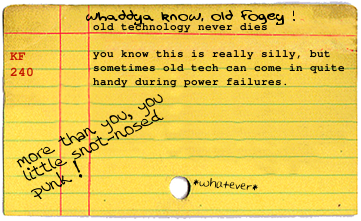 whaddya know, old fogey!
old technology never dies
KF
240
you know this is really silly, but
sometimes old tech can come in quite
handy during power failures.
more than you, you
little snot-nosed
punk!
*whatever*